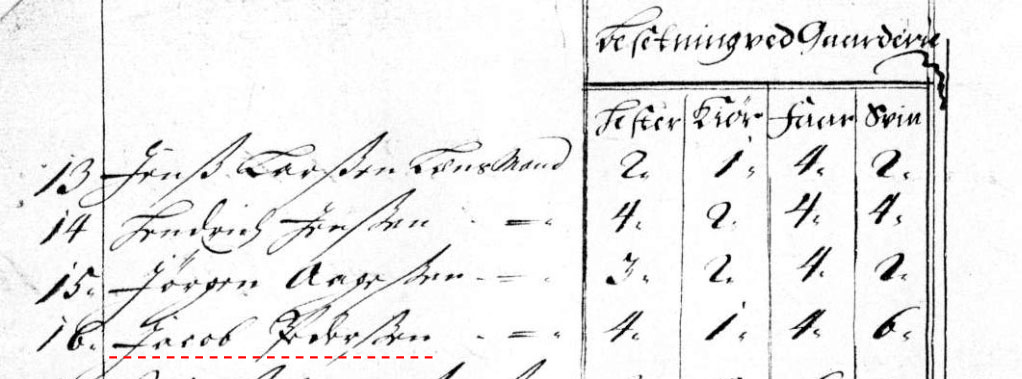 Besetning ved Gaarderne
Hester Kiör Faar Svin
13 Jenß Larßen Lens Mand 2. 1. 4. 2.
14 Hendrich Jenßen - = . 4. 2. 4. 4.
15. Jörgen Aageßen - = . 3. 2. 4. 2.
16. Jacob Pederßen . = . 4. 1. 4. 6.